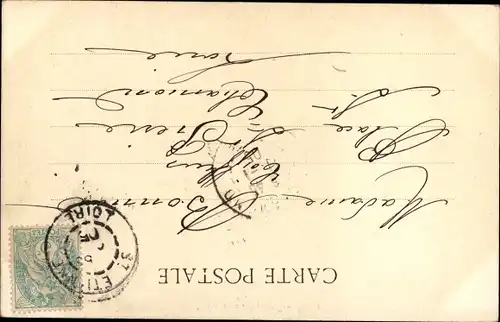 CARTE POSTALE
Madame Bonn
Coiffeur
Place St Pierre
St Chamond
Loire
ST ETIENNE
LOIRE